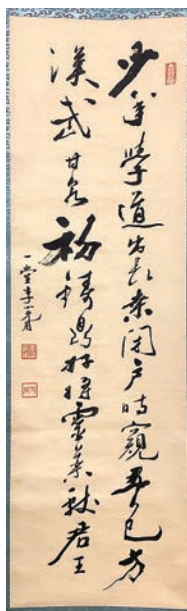 少年學道出長桑閉戶時窺五色方
漢武甘泉初鑄鼎好將靈藥獻君王
一堂李完用